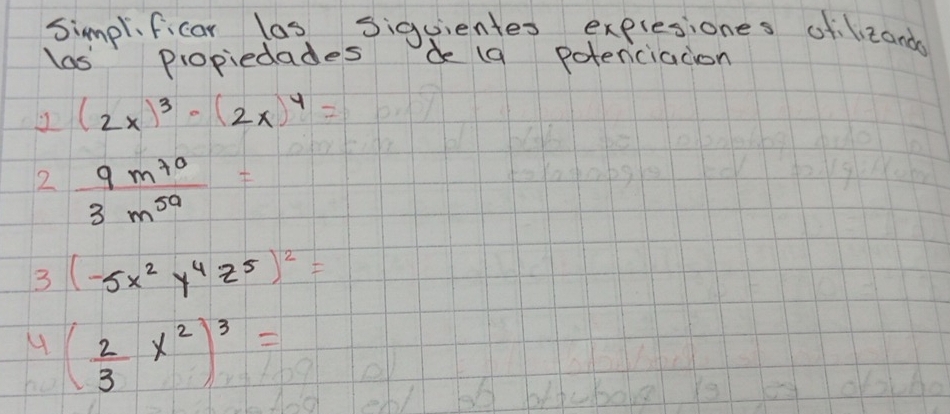 Simplificar las siguientes expresiones utilizando
las propiedades de la potenciacion
1 (2x)³ · (2x)⁴ =
2 9 m⁷ᵃ / 3 m⁵ᵃ =
3 (-5x² y⁴ z⁵)² =
4 (2/3 x²)³ =